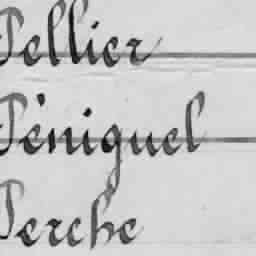 Pellier
Péniguel
Perche